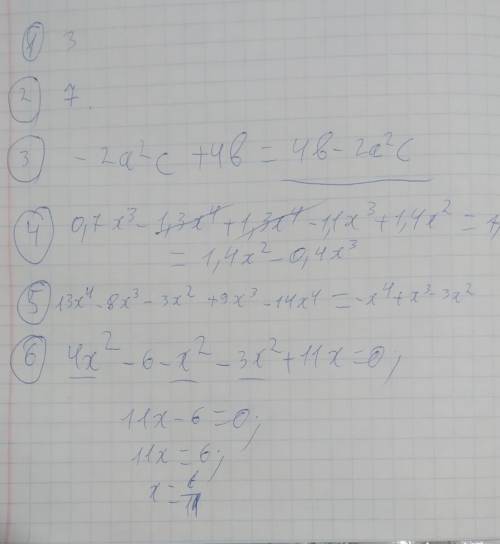 ① 3
② 7.
③ -2a²c + 4b = 4b - 2a²c
④ 0,7x³ - 1,3x⁴ + 1,3x⁴ - 1,1x³ + 1,4x² =
= 1,4x² - 0,4x³
⑤ 13x⁴ - 8x³ - 3x² + 9x³ - 14x⁴ = -x⁴ + x³ - 3x²
⑥ 4x² - 6 - x² - 3x² + 11x = 0;
11x - 6 = 0;
11x = 6;
x = 6/11